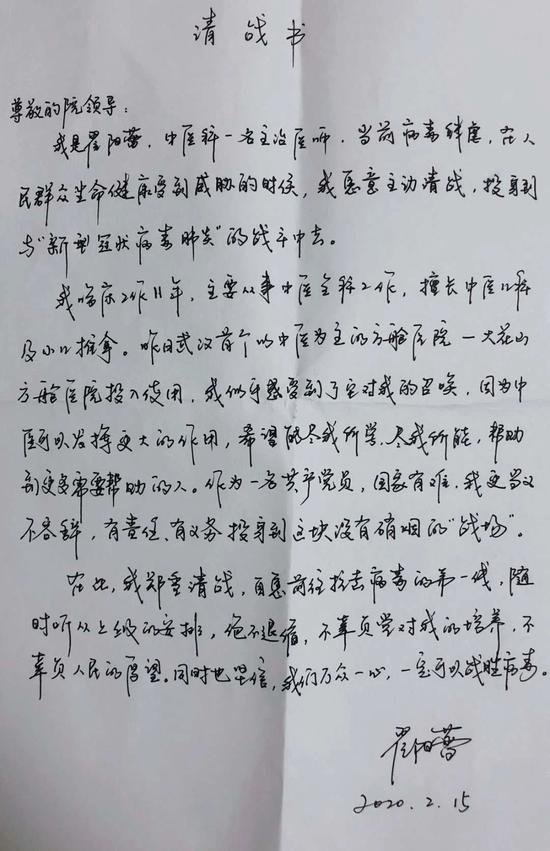 请战书
尊敬的院领导：
我是翟阳蕾，中医科一名主治医师，当前病毒肆虐，在人
民群众生命健康受到威胁的时候，我愿意主动请战，投身到
与“新型冠状病毒肺炎”的战斗中去。
我临床工作11年，主要从事中医全科工作，擅长中医内科
及小儿推拿。昨日武汉首个以中医为主的方舱医院—大花山
方舱医院投入使用，我似乎感受到了它对我的召唤，因为中
医可以发挥更大的作用，希望能尽我所学、尽我所能，帮助
到更多需要帮助的人。作为一名共产党员，国家有难，我更当义
不容辞，有责任、有义务投身到这块没有硝烟的“战场”。
在此，我郑重请战，自愿前往抗击病毒的第一线，随
时听从上级的安排，绝不退缩，不辜负党对我的培养，不
辜负人民的厚望。同时也坚信，我们万众一心，一定可以战胜病毒。
翟阳蕾
2020.2.15